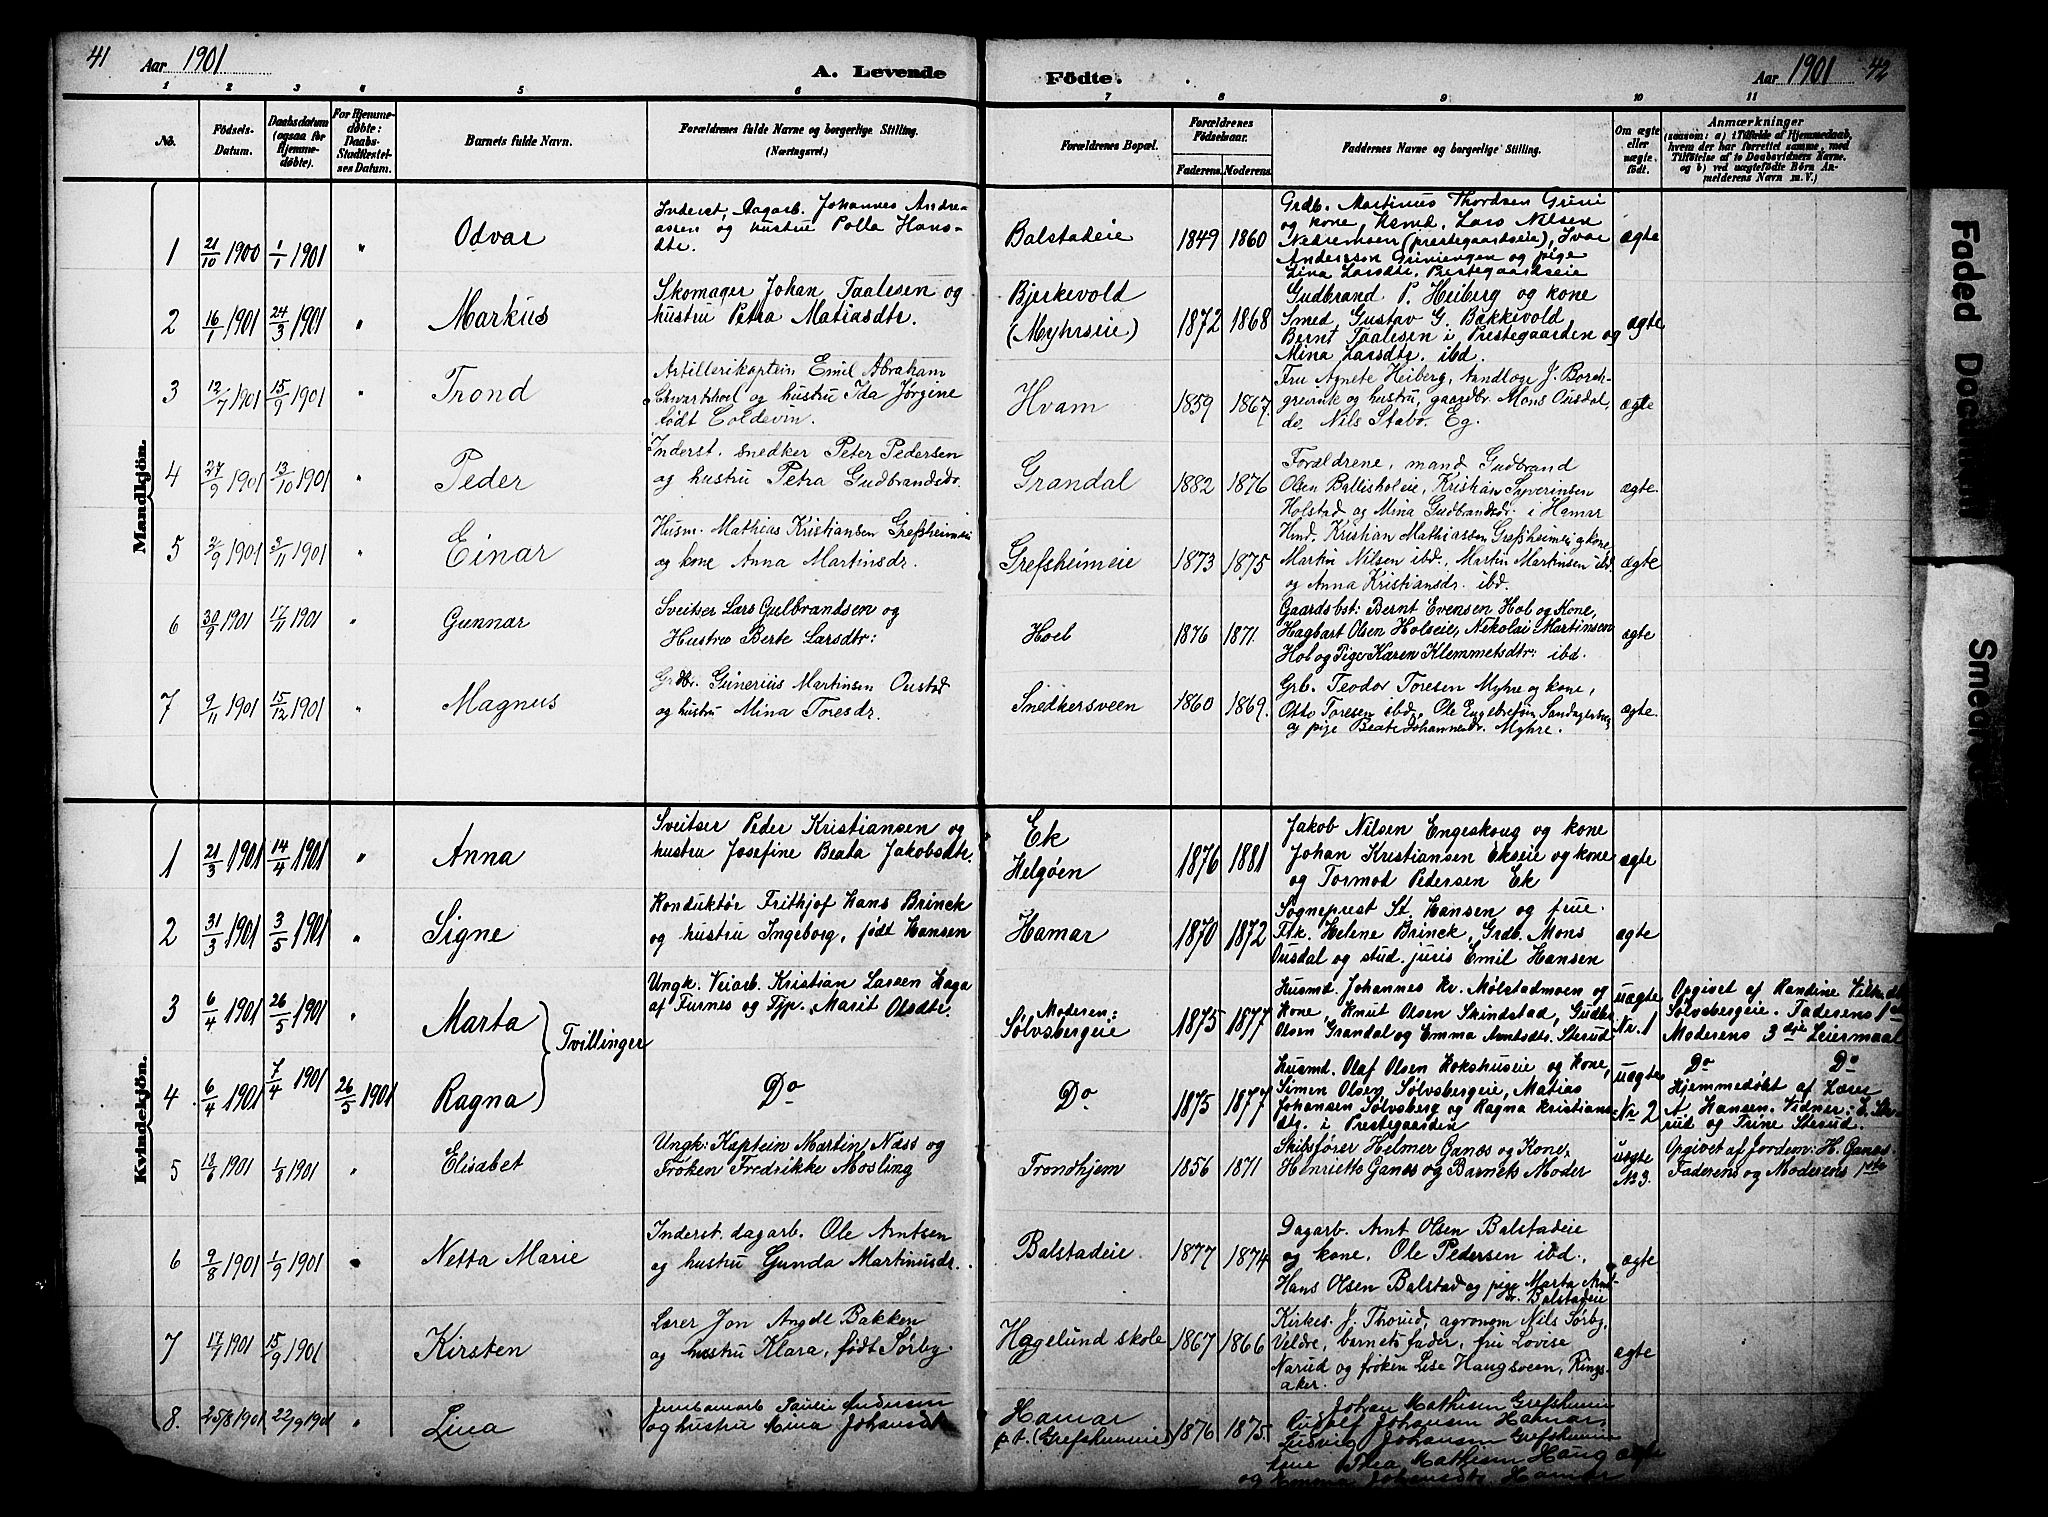 41 Aar 1901 A. Levende Födte. Aar 1901 42
1 2 3 4 5 6 7 8 9 10 11
No. Födsels-Datum. Daabsdatum (ogsaa for Hjemmedöbte). For Hjemmedøbte: Daabs-Stadfæstelses Datum. Barnets fulde Navn. Forældrenes fulde Navne og borgerlige Stilling. (Næringsvei.) Forældrenes Bopæl. Forældrenes Födselsaar. Faderens. Moderens. Faddernes Navne og borgerlige Stilling. Om ægte eller uægte født. Anmærkninger (saasom: a) i Tilfælde af Hjemmedaab, hvem der har forrettet samme, med Tilföielse af to Daabsvidners Navne, og b) ved uægtefödte Börn Anmelderens Navn m.V.)
Mandkjön.
1 21/10 1900 1/1 1901 " Odvar
Inderst, Dagarb. Johannes Andre-
assen og hustru Polla Hans-
dtr.
Balstadeie 1849 1860
Grdb. Martinus Thordsen Grini
og kone, Hsmd. Lars Nilsen
Nedremoen (prestegaardseie), Ivar
Anderssen Griniengen og pige
Lina Larsdtr. Prestegaardseie
ægte
2 16/1 1901 24/3 1901 " Markus
Skomager Johan Taalesen og
hustru Petra Matiasdtr.
Bjerkevold
(Myhrseie) 1872 1868
Gudbrand P. Heiberg og kone
Smed Gustav G. Bakkevold
Bernt Taalesen i Prestegaarden og
Mina Larsdtr. ibd.
ægte
3 12/7 1901 15/9 1901 " Trond
Artillerikaptein Emil Abraham
og hustru Ida Jørgine
født Coldevin.
Hvam 1859 1867.
Fru Agnete Heiberg, tandlæge J. Borch-
grevink og hustru, gaardbr. Mons Ousdal,
do. Nils Stabo. Eg.
ægte
4 27/9 1901 13/10 1901 " Peder
Inderst. snedker Peter Pedersen
og hustru Petra Gudbrandsdr.
Grandal 1882 1876
Forældrene, mand Gudbrand
Olsen Ballisholeie, Kristian Syverinsen
Holstad og Mina Gudbrandsdr. i Hamar
ægte.
5 2/9 1901 3/11 1901 " Einar
Husm. Mathias Kristiansen Grefsheimeie
og kone Anna Martinsdr.
Grefsheimeie 1873 1875
Hmd. Kristian Mathiassen Grefsheimeie og kone,
Martin Nilsen ibd., Martin Martinsen ibd
og Anna Kristiansdr. ibd.
ægte
6 30/9 1901 17/11 1901 " Gunnar
Sveitser Lars Gulbrandsen og
Hustru Berte Larsdtr:
Hoel 1876 1871.
Gaardsbst: Bernt Evensen Hol og Kone,
Hagbart Olsen Holseie, Nikolai Martinsen
Hol og Pige Karen Klemmetsdtr: ibd.
ægte
7 9/11 1901 15/12 1901 " Magnus
Grdbr. Gunerius Martinsen Oustad
og hustru Mina Toresdr.
Snedkersveen 1860 1869.
Grb. Teodor Toresen Myhre og kone,
Otto Toresen ibd., Ole Engebretsen
og pige Beate Johannesdr. Myhre.
ægte.
Kvindekjön.
1 21/3 1901 14/4 1901 " Anna
Sveitser Peder Kristiansen og
hustru Josefine Beata Jakobsdtr.
Ek
Helgøen 1876 1881
Jakob Nilsen Engeskoug og kone
Johan Kristiansen Ekseie og kone
og Tormod Pedersen Ek
ægte
2 31/3 1901 3/5 1901 " Signe
Konduktør Frithjof Hans Brinck
og hustru Ingeborg, født Hansen
Hamar 1870 1872
Sogneprest St. Hansen og frue.
Frk. Helene Brinck, Grdb. Mons
Ousdal og stud. juris Emil Hansen
ægte
3 6/4 1901 26/5 1901 " Marta
Tvillinger
Ungk. Veiarb. Kristian Larsen Haga
af Furnes og Tjp. Marit Olsdtr.
Moderen:
Sølvsbergeie 1875 1877
Husmd. Johannes Kr. Mølstadmoen og
Kone, Knut Olsen Skindstad, Gudbr.
Olsen Grandal og Emma Arntsdtr. Sterud
uægte
Nr. 1
Opgivet af Randine
Sølvsbergeie. Faderens 1ste
Moderens 3die Leiermaal
4 6/4 1901 7/4 1901 26/5 1901 Ragna
Do Do 1875 1877
Husmd. Olaf Olsen Kokshuseie og Kone,
Simen Olsen Sølvsbergeie, Matias
Johansen Sølvsberg og Ragna Kristians-
dtr. i Prestegaarden
uægte
Nr 2
Do Do
Hjemmedøbt af Lærer
A Hansen. Vidner:
rud og Trine Sterud.
5 13/6 1901 1/8 1901 " Elisabet
Ungk: Kaptein Martin Næss og
Frøken Fredrikke Mosling
Trondhjem 1856 1871
Skibsfører Helmer Ganæs og Kone,
Henriette Ganæs og Barnets Moder
uægte
No 3.
Opgivet af Jordem: H. Ganæs.
Faderens og Moderens 1ste
6 9/8 1901 1/9 1901 " Netta Marie
Inderst. dagarb. Ole Arntsen
og hustru Gunda Martinusdr.
Balstadeie 1877 1874
Dagarb. Arnt Olsen Balstadeie
og kone, Ole Pedersen ibd.,
Hans Olsen Balstad og pige Marta Arnt-
dr. Balstadeie
ægte
7 17/7 1901 15/9 1901 " Kirsten
Lærer Jon Bakken
og hustru Klara, født Sørby.
Hagelund skole 1867 1866
Kirkes. J. Thorud, agronom Nils Sørby,
Veldre, barnets fader, fru Lovise
Narud og frøken Lise Haugsveen, Rings-
aker.
ægte
8. 25/8 1901 22/9 1901 " Lina
Jernbanearb. Andersen
og hustru Mina Johansdtr
Hamar
p.t. (Grefsheimeie) 1876 1875.
Johan Mathisen Grefsheimeie
Johansen Hamar,
Ludvig Johansen Grefsheimeie
Thea Mathisen Haug
og Emma Johansdtr Hamar
ægte
Faded Document
Smeared